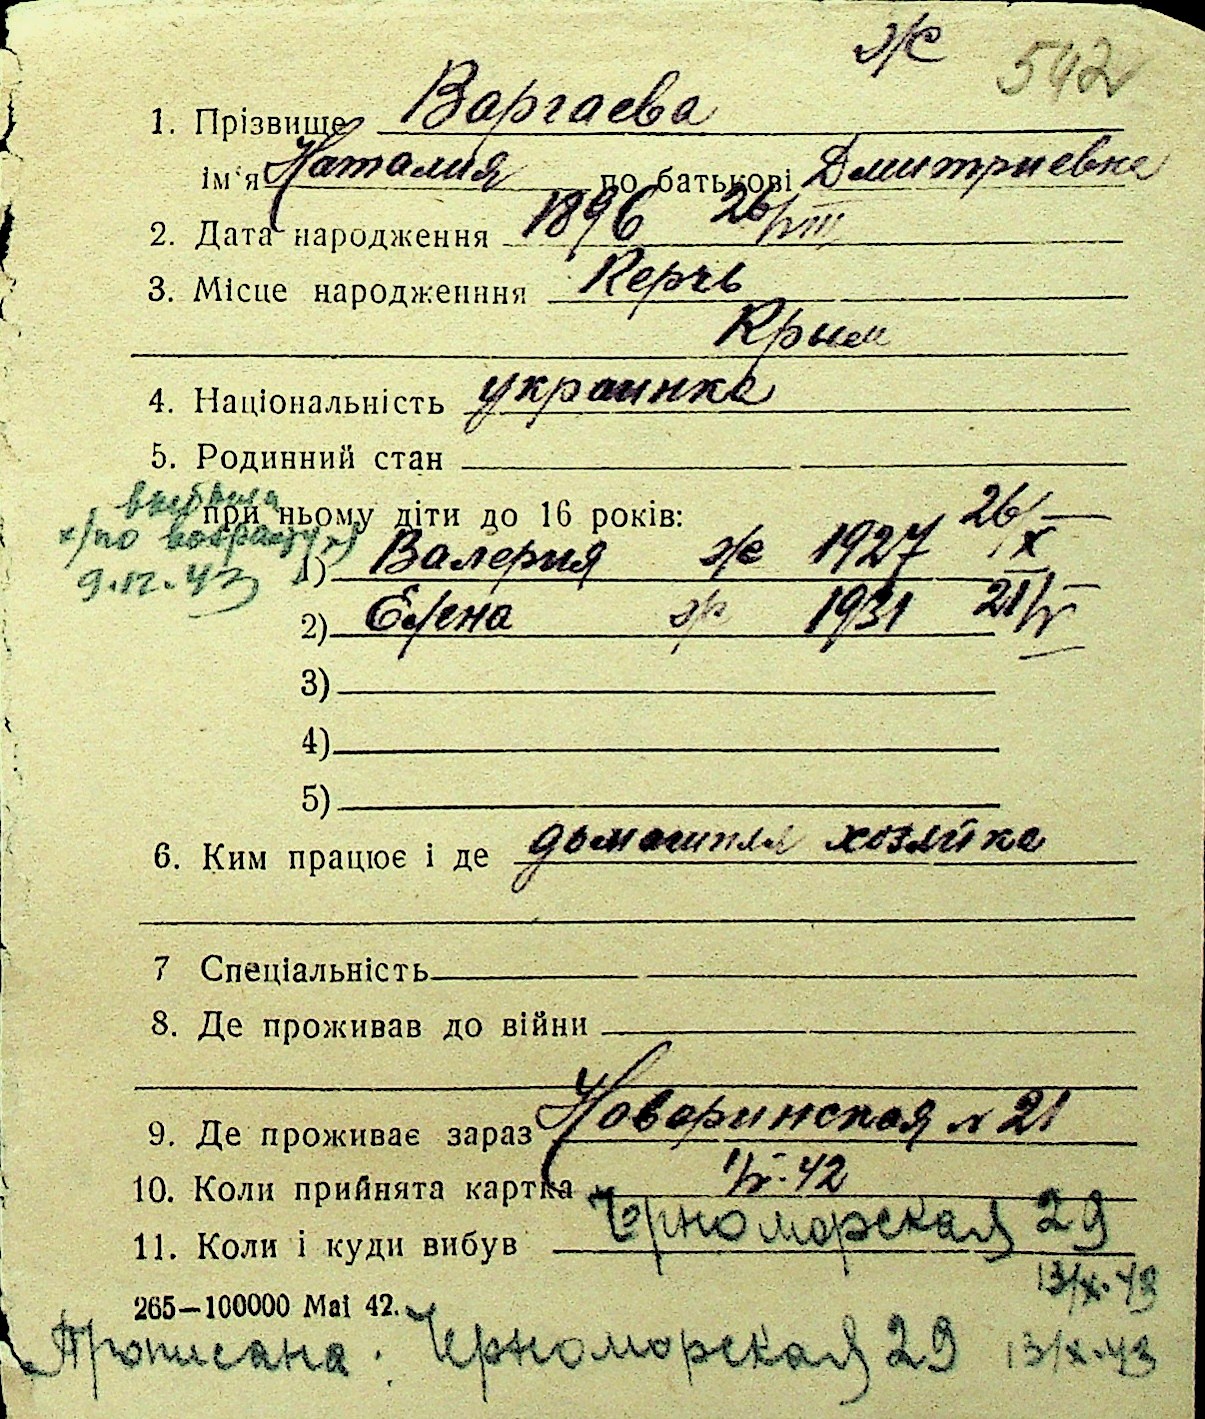 ж 542
1. Прізвище Варгаева
ім'я Наталия по батькові Дмитриевна
2. Дата народження 1896 26/VIII
3. Місце народженння Керчь
Крым
4. Національність украинка
5. Родинний стан
при ньому діти до 16 років:
х/по возрасту х)
9.IX.43
1) Валерия ж 1927 26/X
2) Елена ж 1931 21/V
3)
4)
5)
6. Ким працює і де домашняя хозяйка
7 Спеціальність
8. Де проживав до війни
9. Де проживає зараз № 21
10. Коли прийнята картка 1/V-42
11. Коли і куди вибув Черноморская 29
13/X-43
265—100000 Mai 42.
Прописана. Черноморская 29 13/X-43